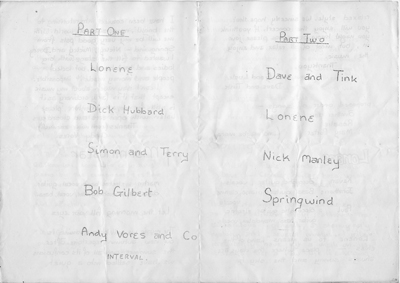 PART ONE
LORENE
Dick Hubbard
Simon and Terry
Bob Gilbert
Andy Vores and Co
INTERVAL
PART TWO
Dave and Tink
LORENE
Nick Manley
Springwind